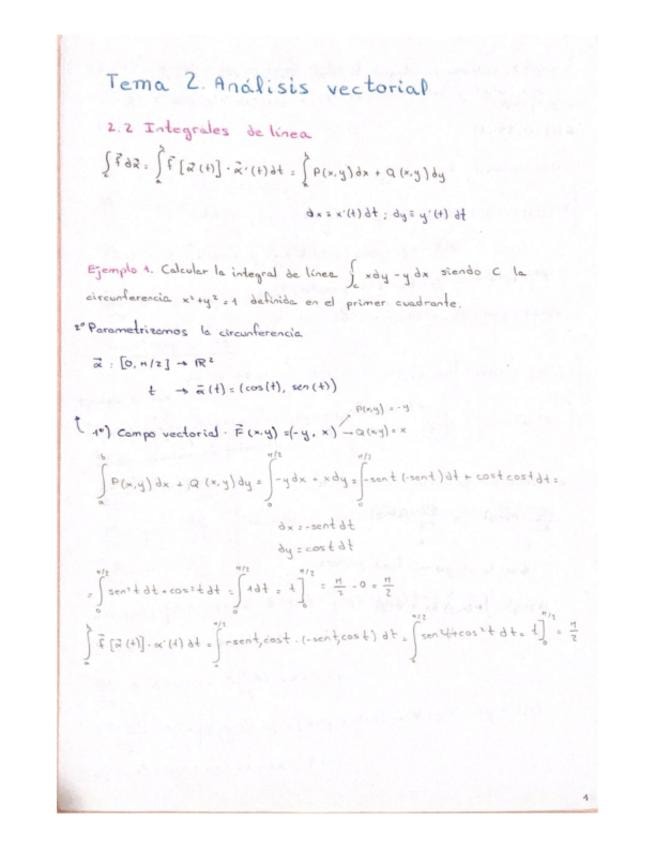 Tema 2. Análisis vectorial
2.2 Integrales de línea
∫_a f⃗ dα⃗ = ∫_a^b f⃗ [α⃗(t)] · α⃗'(t) dt = ∫_a^b P(x,y) dx + Q(x,y) dy
dx = x'(t) dt ; dy = y'(t) dt
Ejemplo 1. Calcular la integral de línea ∫_C xdy - y dx siendo C la
circunferencia x² + y² = 1 definida en el primer cuadrante.
2º Parametrizamos la circunferencia
α⃗ : [0, π/2] → ℝ²
t → α⃗(t) = (cos(t), sen(t))
P(x,y) = -y
1º) Campo vectorial · F⃗(x,y) = (-y, x) → Q(x,y) = x
∫_a^b P(x,y) dx + Q(x,y) dy = ∫_0^{π/2} -y dx + x dy = ∫_0^{π/2} -sent (-sent) dt + cost cost dt =
dx = -sent dt
dy = cost dt
= ∫_0^{π/2} sen²t dt + cos²t dt = ∫_0^{π/2} 1 dt = t]_0^{π/2} = π/2 - 0 = π/2
∫_a^b f⃗ [α⃗(t)] · α'(t) dt = ∫_0^{π/2} (-sent, cost · (-sent, cost) dt = ∫_0^{π/2} sen²t + cos²t dt = t]_0^{π/2} = π/2
1